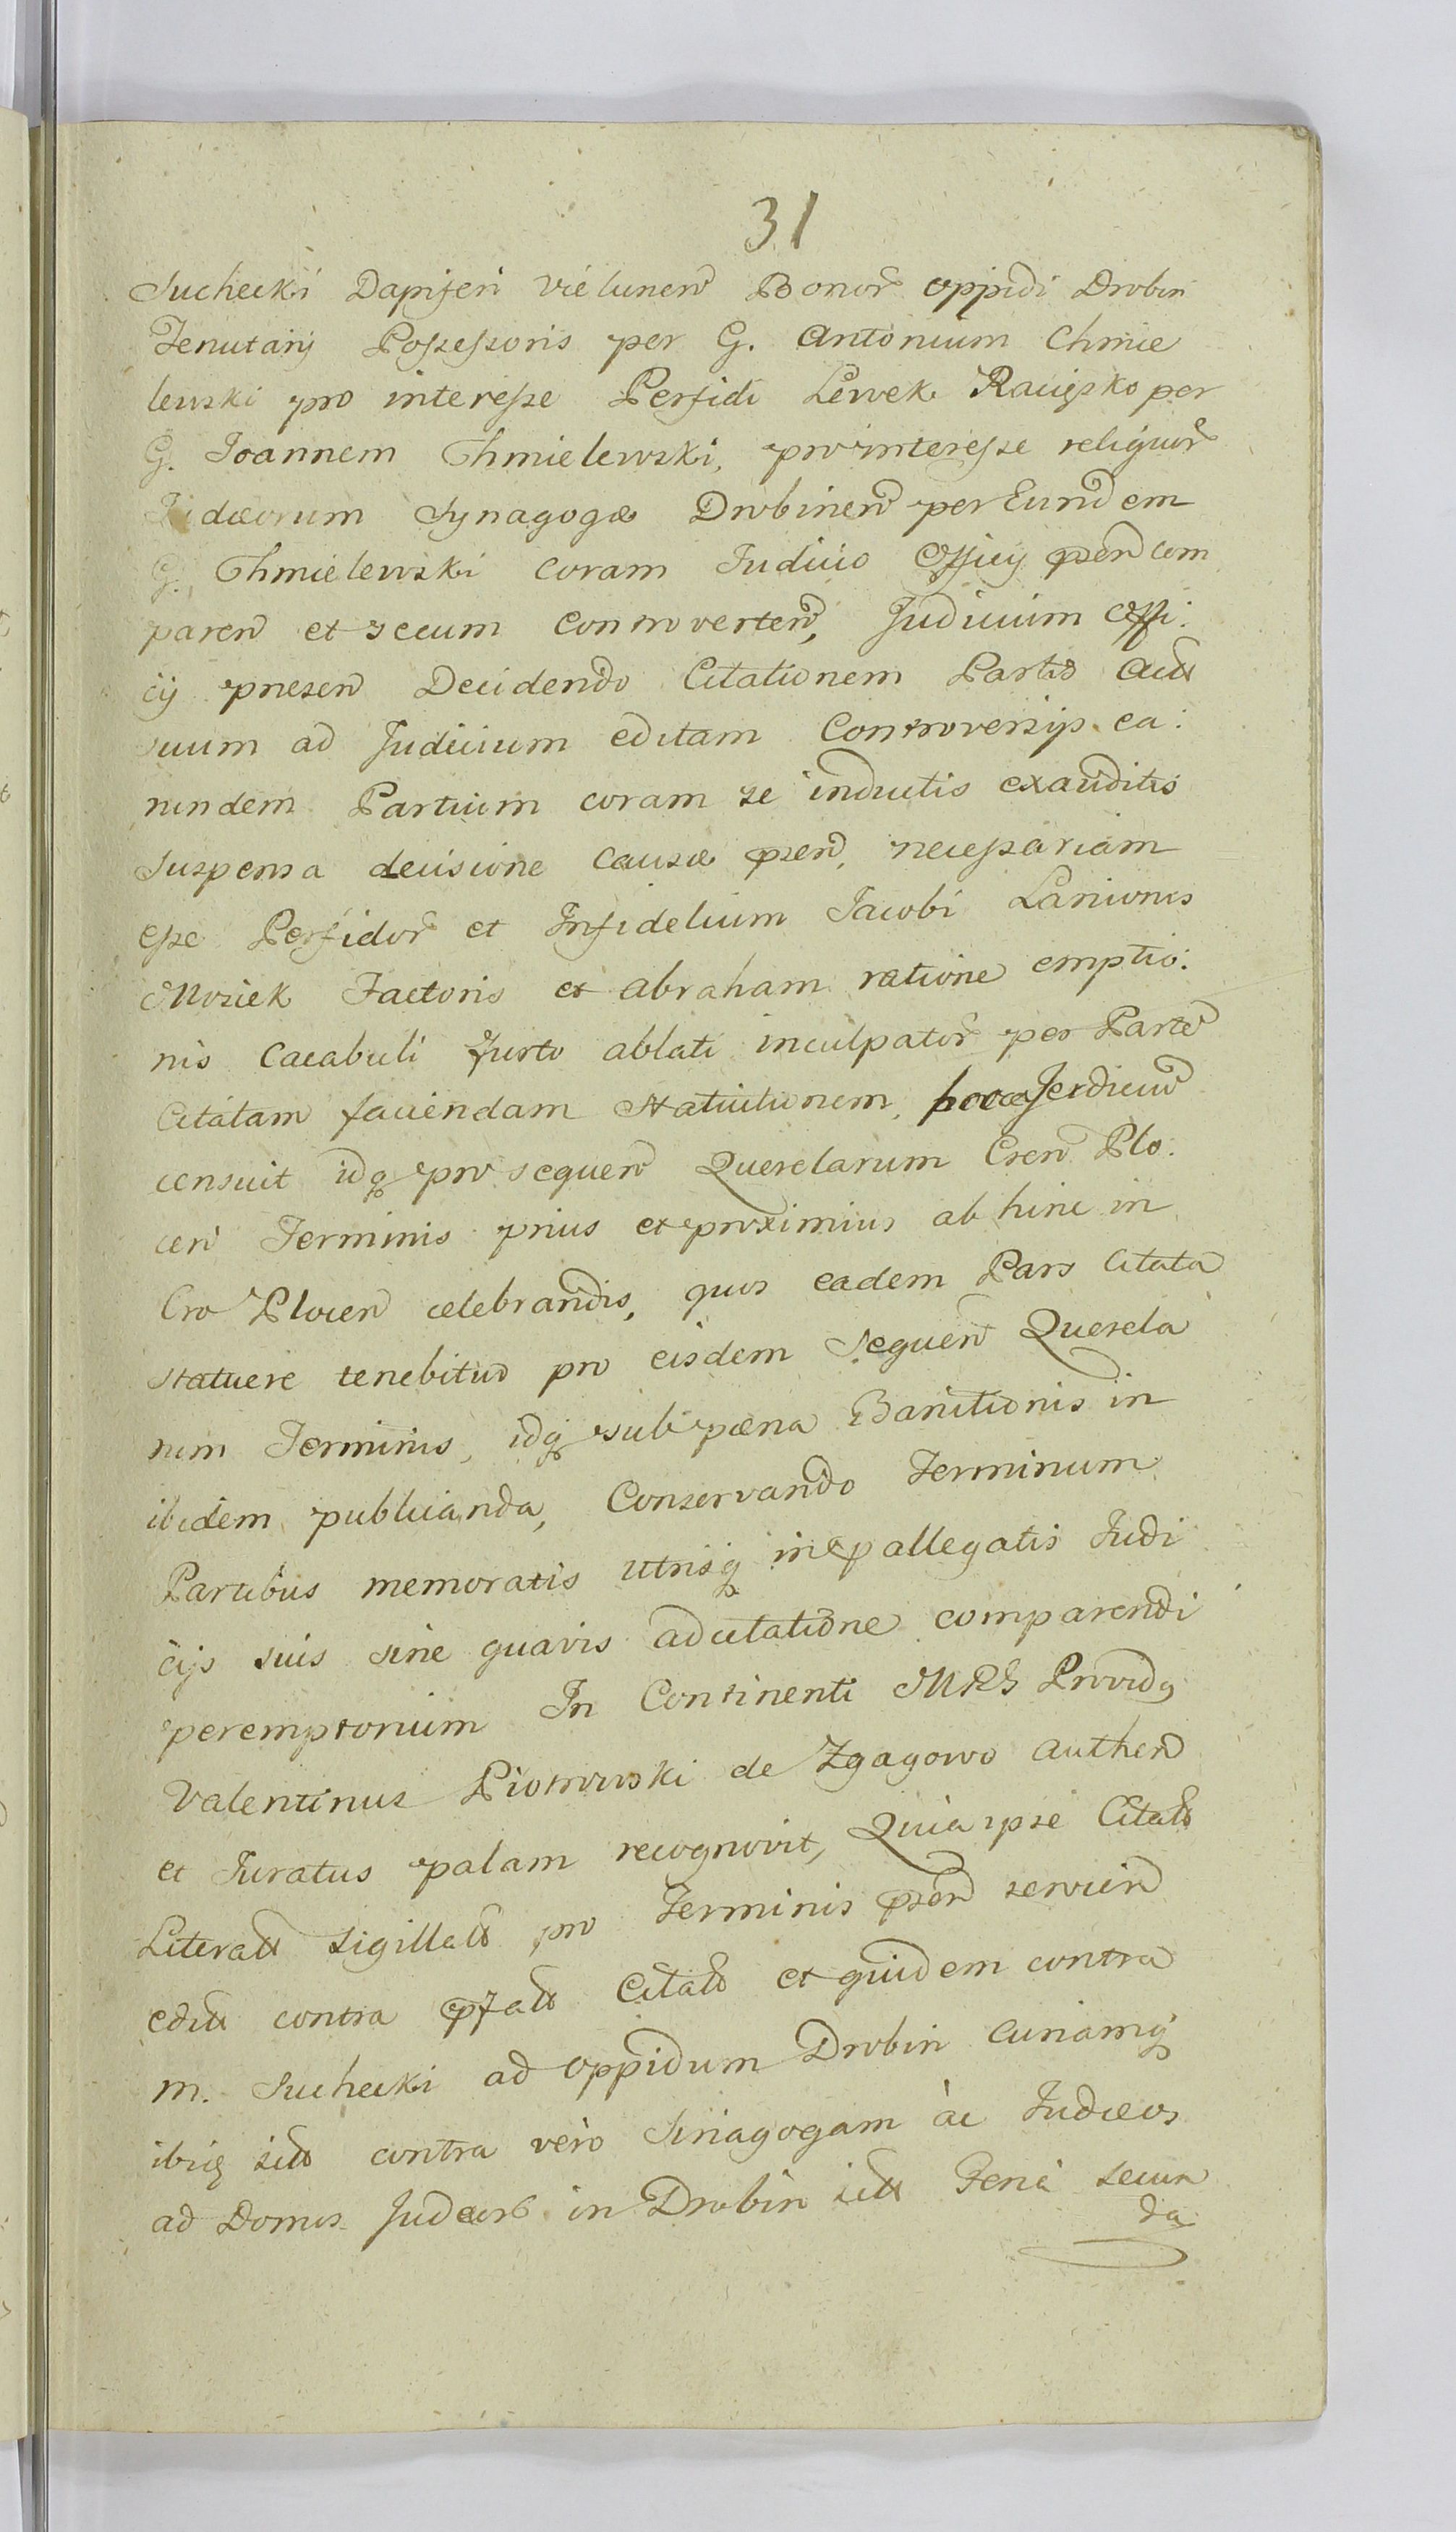 31
Suchecki Dapiferi Vielunen Bonor oppidi Drobin
Tenutarij Possessoris per G. Antonium Chmie
lewski pro interesse Perfidi Lewek Raciązko per
G. Joannem Chmielewski, pro interesse reliquor
Judæorum Synagogæ Drobinen per Eundem
G. Chmielewski coram Judicio Officij psen com
paren et secum controverten, Judicium Offi:
cij presen Decidendo Citationem Partis Act
suum ad Judicium editam Controversijs ea:
rundem Partium coram se inductis exauditis
suspensa decisione causæ psen, necessariam
esse Perfidor et Infidelium Jacobi Lanionis
Mosiek Factoris et Abraham ratione emptio:
nis Cacabuli furto ablati inculpator per Parte
Citatam faciendam statuitionem,
censuit idq pro sequen Querelarum Cren Plo:
cen Terminis prius et proximius ab hinc in
Cro Plocen celebrandis, quos eadem Pars Citata
statuere tenebitur pro eisdem sequen Querela
rum Terminis, idq sub pæna Banitionis in
ibidem publicanda, Conservando Terminum
Partibus memoratis utrisq in allegatis Judi
cijs suis sine quavis adcitatione comparendi
peremptorium In Continenti MRS Provid9
Valentinus Piotrowski de Zgagowo Authen
et Juratus palam recognovit, Quia ipse Citat
Literat Sigillat pro Terminis psen servien
edit contra pfat Citat et quidem contra
M. Suchecki ad Oppidum Drobin Curiamq
ibiq sit contra vero Sinagogam ac Judæos
ad Domos Judæor in Drobin sit Feria secun
da